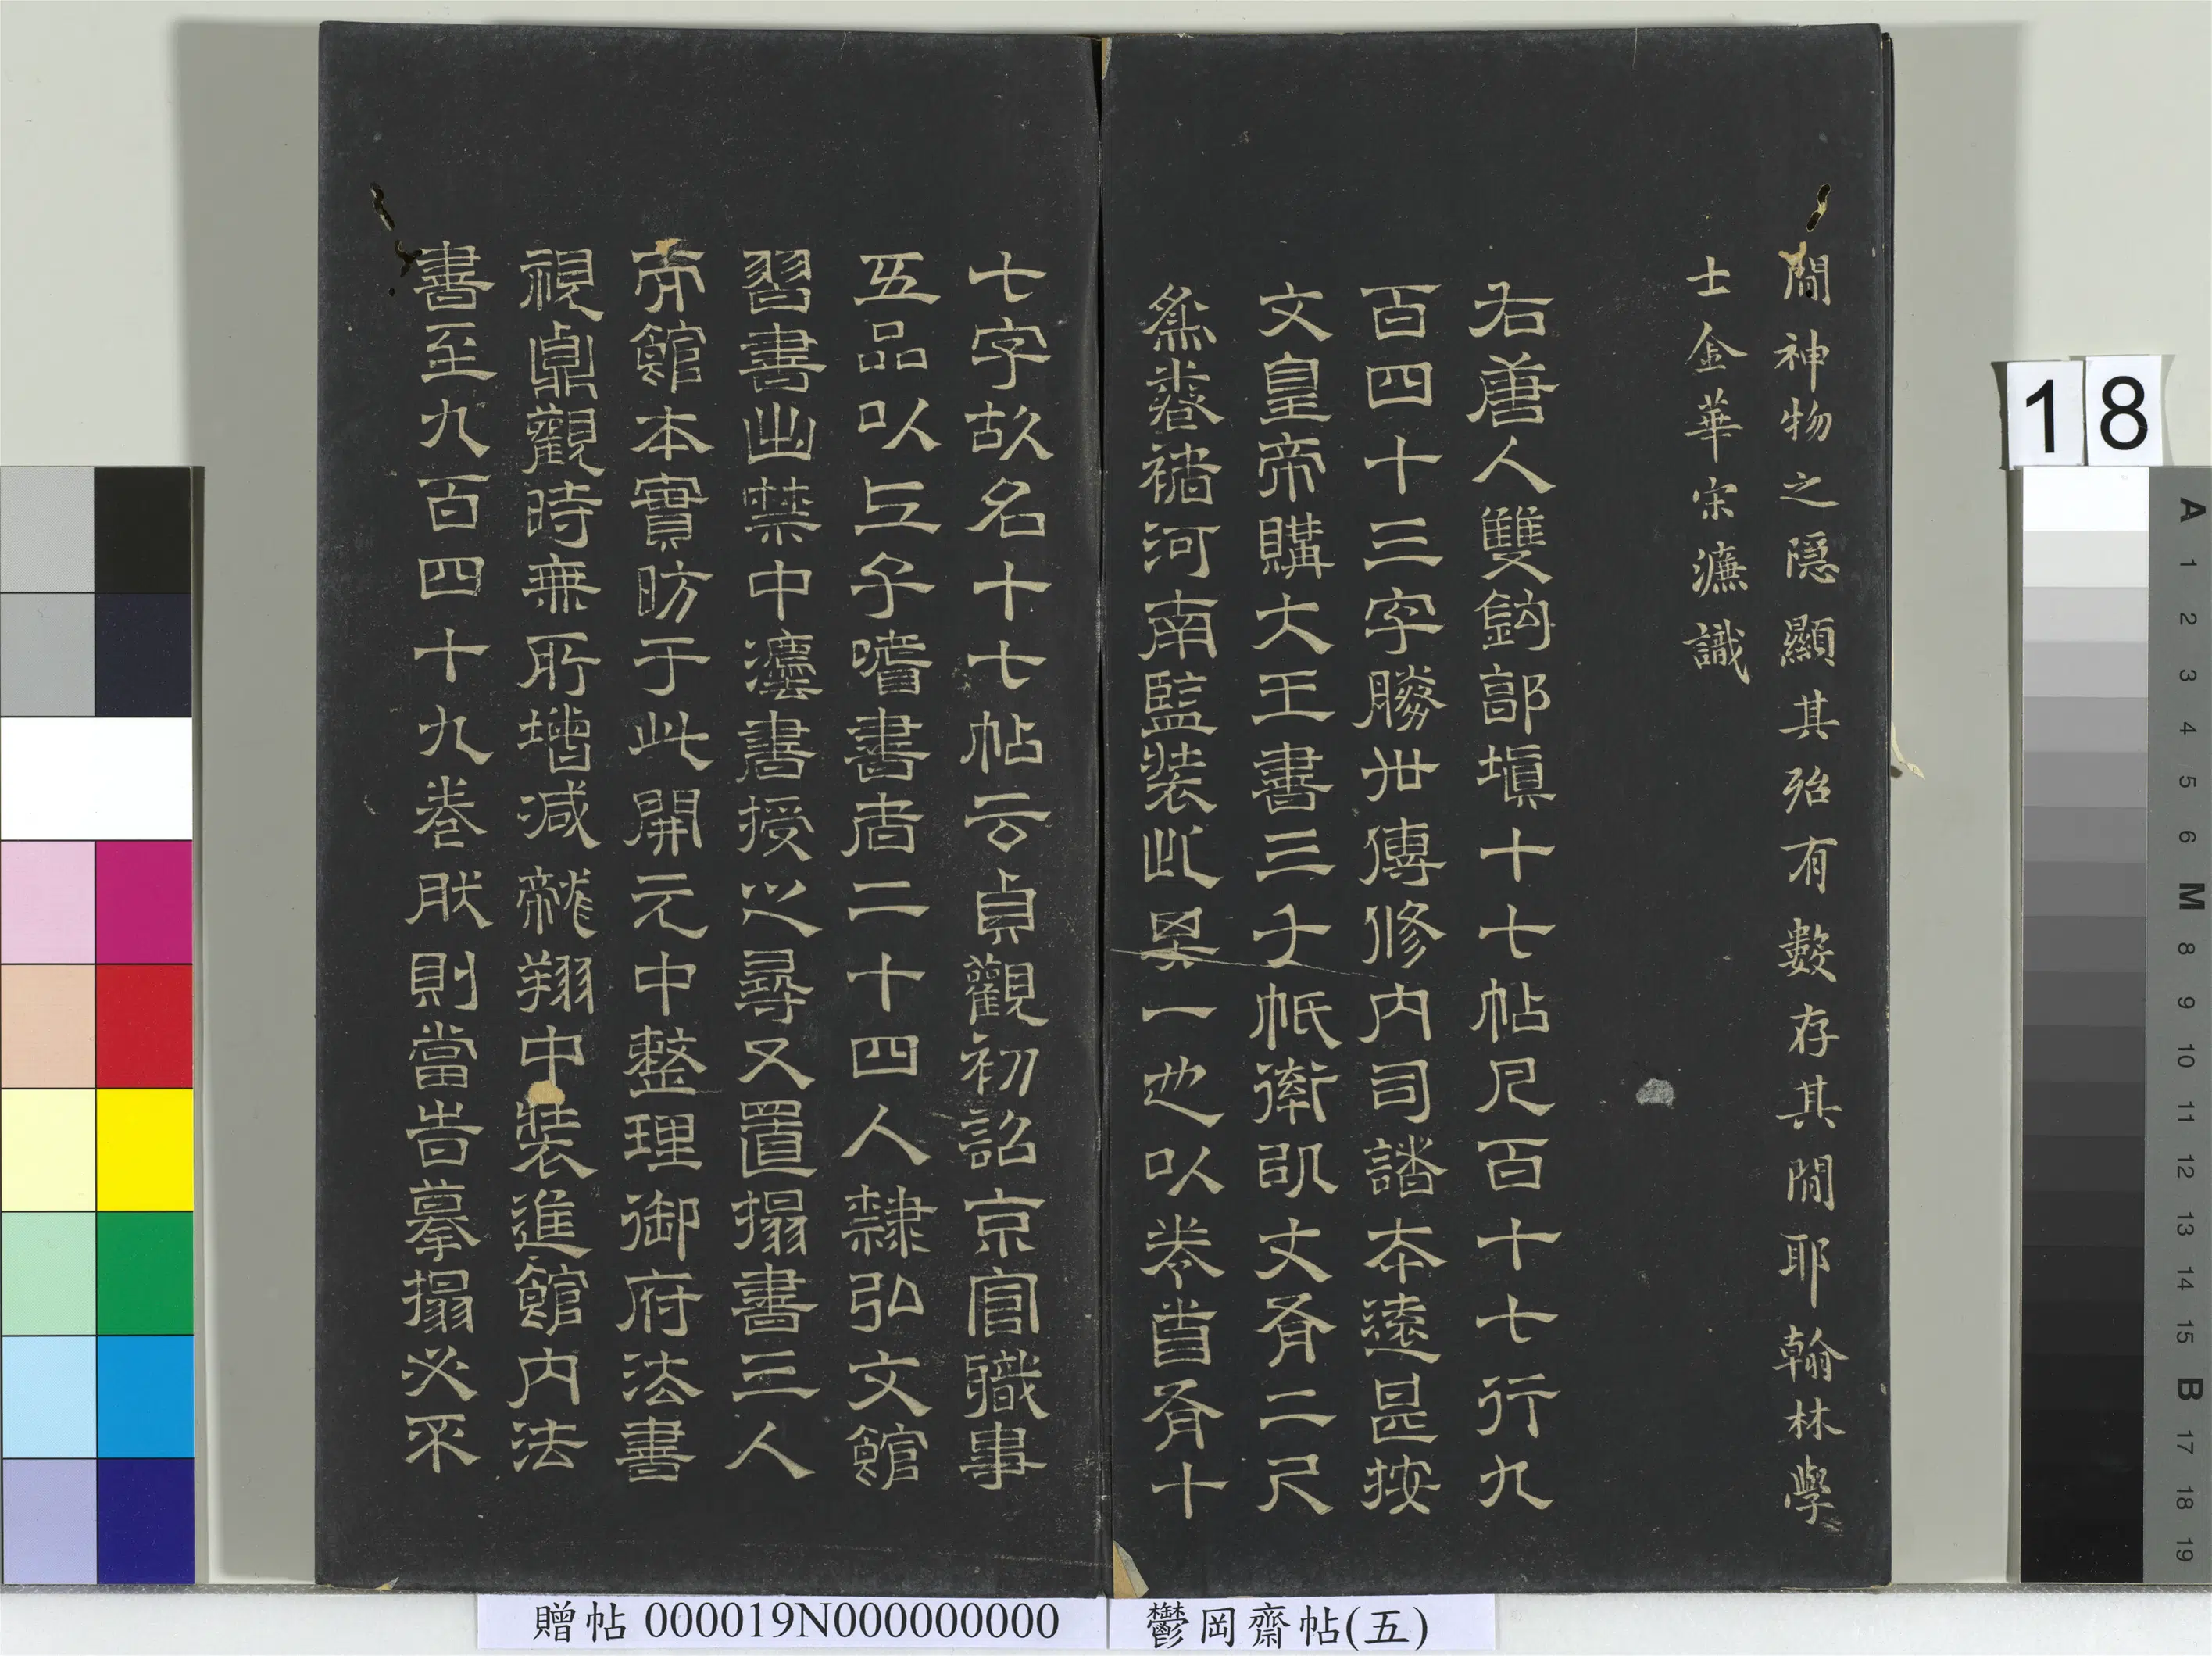 間神物之隱顯其殆有數存其間耶翰林學
士金華宋濂識
右唐人雙鉤部填十七帖凡百十七行九
百四十三字勝世傳修內司諸本遠甚按
文皇帝購大王書三千帋率以丈有二尺
為卷褚河南監裝此其一也以卷首有十
七字故名十七帖云貞觀初詔京官職事
五品以上子嗜書者二十四人隸弘文館
習書出禁中法書授之尋又置搨書三人
而館本實昉于此開元中整理御府法書
視鼎觀時無所增減龍翔中裝進館內法
書至九百四十九卷然則當時摹搨必不
贈帖 000019N000000000
鬱岡齋帖(五)
18
A 1 2 3 4 5 6 M 8 9 10 11 12 13 14 15 B 17 18 19